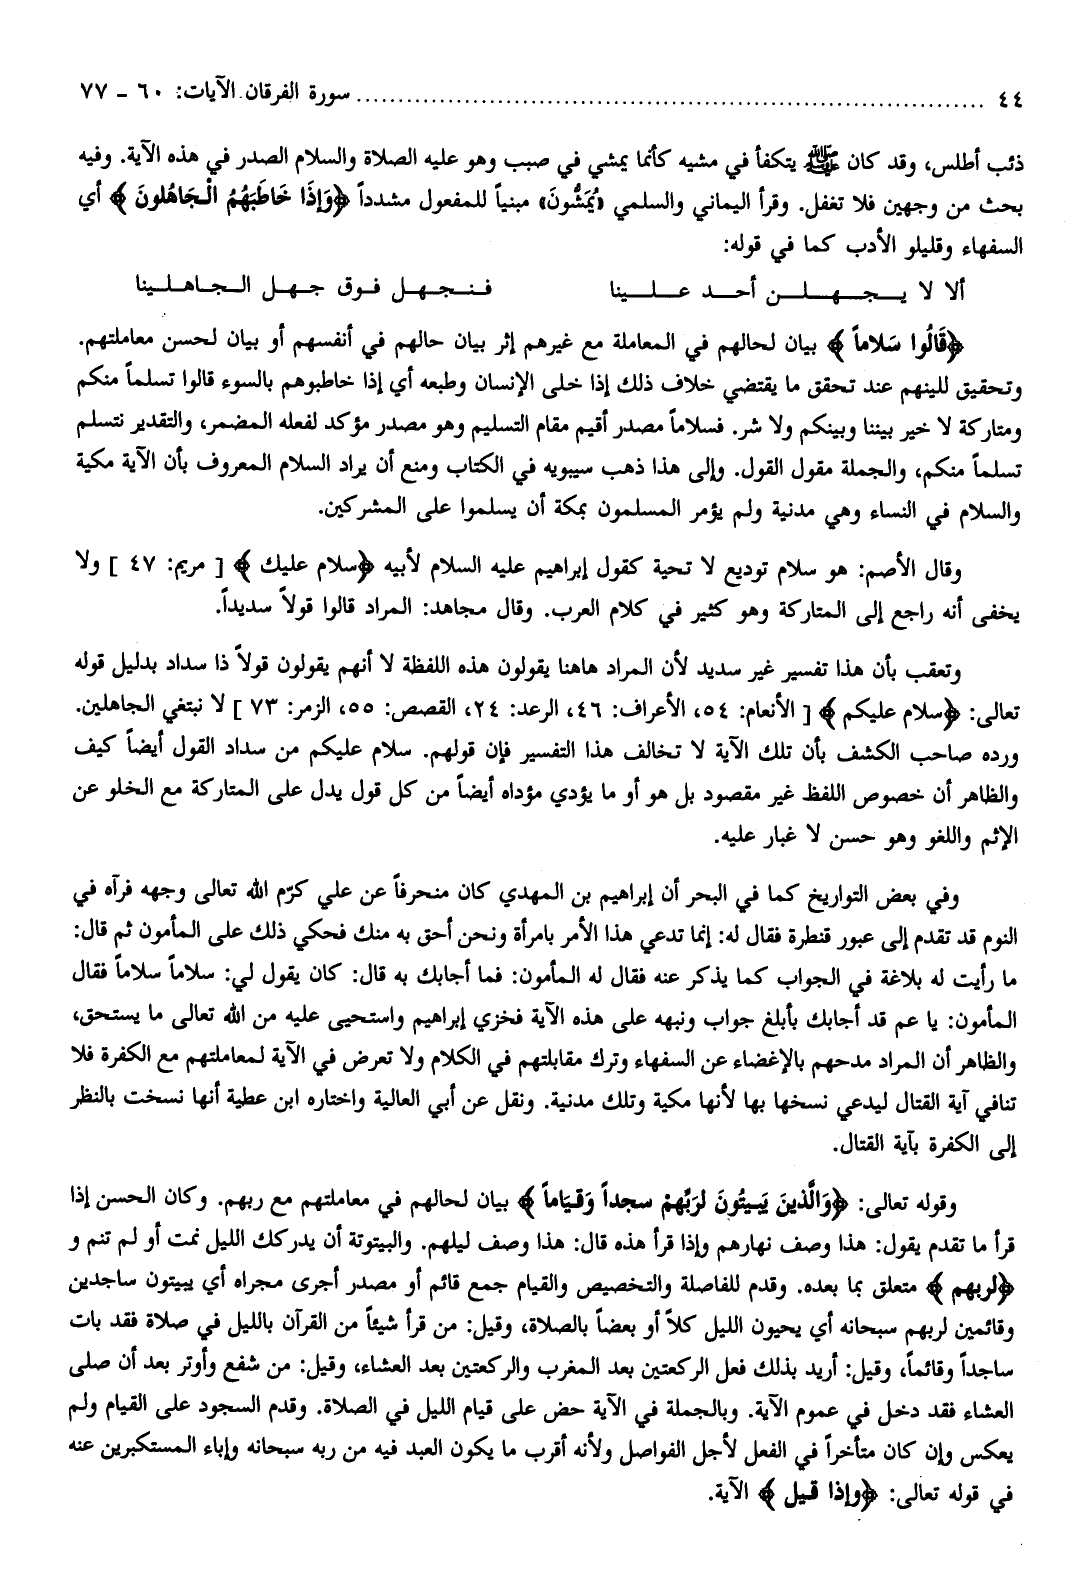 ٤٤ ........................ سورة الفرقان الآيات: ٦٠ ــ ٧٧
ذئب أطلس، وقد كان ﷺ يتكفأ في مشيه كأنما يمشي في صبب وهو عليه الصلاة والسلام الصدر في هذه الآية. وفيه
بحث من وجهين فلا تغفل. وقرأ اليماني والسلمي «يُمَشُّونَ» مبنياً للمفعول مشدداً ﴿وَإِذَا خَاطَبَهُمُ الْجَاهلُونَ﴾ أي
السفهاء وقليلو الأدب كما في قوله:
ألا لا يـجـهـلـن أحـد عـلـيـنا فـنـجـهـل فـوق جـهـل الـجـاهـلـينا
﴿قَالُوا سَلاماً﴾ بيان لحالهم في المعاملة مع غيرهم إثر بيان حالهم في أنفسهم أو بيان لحسن معاملتهم.
وتحقيق للينهم عند تحقق ما يقتضي خلاف ذلك إذا خلى الإنسان وطبعه أي إذا خاطبوهم بالسوء قالوا تسلماً منكم
ومتاركة لا خير بيننا وبينكم ولا شر. فسلاماً مصدر أقيم مقام التسليم وهو مصدر مؤكد لفعله المضمر، والتقدير نتسلم
تسلماً منكم، والجملة مقول القول. وإلى هذا ذهب سيبويه في الكتاب ومنع أن يراد السلام المعروف بأن الآية مكية
والسلام في النساء وهي مدنية ولم يؤمر المسلمون بمكة أن يسلموا على المشركين.
وقال الأصم: هو سلام توديع لا تحية كقول إبراهيم عليه السلام لأبيه ﴿سلام عليك﴾ [ مريم: ٤٧ ] ولا
يخفى أنه راجع إلى المتاركة وهو كثير في كلام العرب. وقال مجاهد: المراد قالوا قولاً سديداً.
وتعقب بأن هذا تفسير غير سديد لأن المراد هاهنا يقولون هذه اللفظة لا أنهم يقولون قولاً ذا سداد بدليل قوله
تعالى: ﴿سلام عليكم﴾ [ الأنعام: ٥٤، الأعراف: ٤٦، الرعد: ٢٤، القصص: ٥٥، الزمر: ٧٣ ] لا نبتغي الجاهلين.
ورده صاحب الكشف بأن تلك الآية لا تخالف هذا التفسير فإن قولهم. سلام عليكم من سداد القول أيضاً كيف
والظاهر أن خصوص اللفظ غير مقصود بل هو أو ما يؤدي مؤداه أيضاً من كل قول يدل على المتاركة مع الخلو عن
الإثم واللغو وهو حسن لا غبار عليه.
وفي بعض التواريخ كما في البحر أن إبراهيم بن المهدي كان منحرفاً عن علي كرّم الله تعالى وجهه فرآه في
النوم قد تقدم إلى عبور قنطرة فقال له: إنما تدعي هذا الأمر بامرأة ونحن أحق به منك فحكي ذلك على المأمون ثم قال:
ما رأيت له بلاغة في الجواب كما يذكر عنه فقال له المأمون: فما أجابك به قال: كان يقول لي: سلاماً سلاماً فقال
المأمون: يا عم قد أجابك بأبلغ جواب ونبهه على هذه الآية فخزي إبراهيم واستحيى عليه من الله تعالى ما يستحق،
والظاهر أن المراد مدحهم بالإغضاء عن السفهاء وترك مقابلتهم في الكلام ولا تعرض في الآية لمعاملتهم مع الكفرة فلا
تنافي آية القتال ليدعي نسخها بها لأنها مكية وتلك مدنية. ونقل عن أبي العالية واختاره ابن عطية أنها نسخت بالنظر
إلى الكفرة بآية القتال.
وقوله تعالى: ﴿وَالَّذينَ يَبيتُونَ لرَبِّهمْ سجداً وَقيَاماً﴾ بيان لحالهم في معاملتهم مع ربهم. وكان الحسن إذا
قرأ ما تقدم يقول: هذا وصف نهارهم وإذا قرأ هذه قال: هذا وصف ليلهم. والبيتوتة أن يدركك الليل نمت أو لم تنم و
﴿لربهم﴾ متعلق بما بعده. وقدم للفاصلة والتخصيص والقيام جمع قائم أو مصدر أجرى مجراه أي يبيتون ساجدين
وقائمين لربهم سبحانه أي يحيون الليل كلاً أو بعضاً بالصلاة، وقيل: من قرأ شيئاً من القرآن بالليل في صلاة فقد بات
ساجداً وقائماً، وقيل: أريد بذلك فعل الركعتين بعد المغرب والركعتين بعد العشاء، وقيل: من شفع وأوتر بعد أن صلى
العشاء فقد دخل في عموم الآية. وبالجملة في الآية حض على قيام الليل في الصلاة. وقدم السجود على القيام ولم
يعكس وإن كان متأخراً في الفعل لأجل الفواصل ولأنه أقرب ما يكون العبد فيه من ربه سبحانه وإباء المستكبرين عنه
في قوله تعالى: ﴿وإذا قيل﴾ الآية.